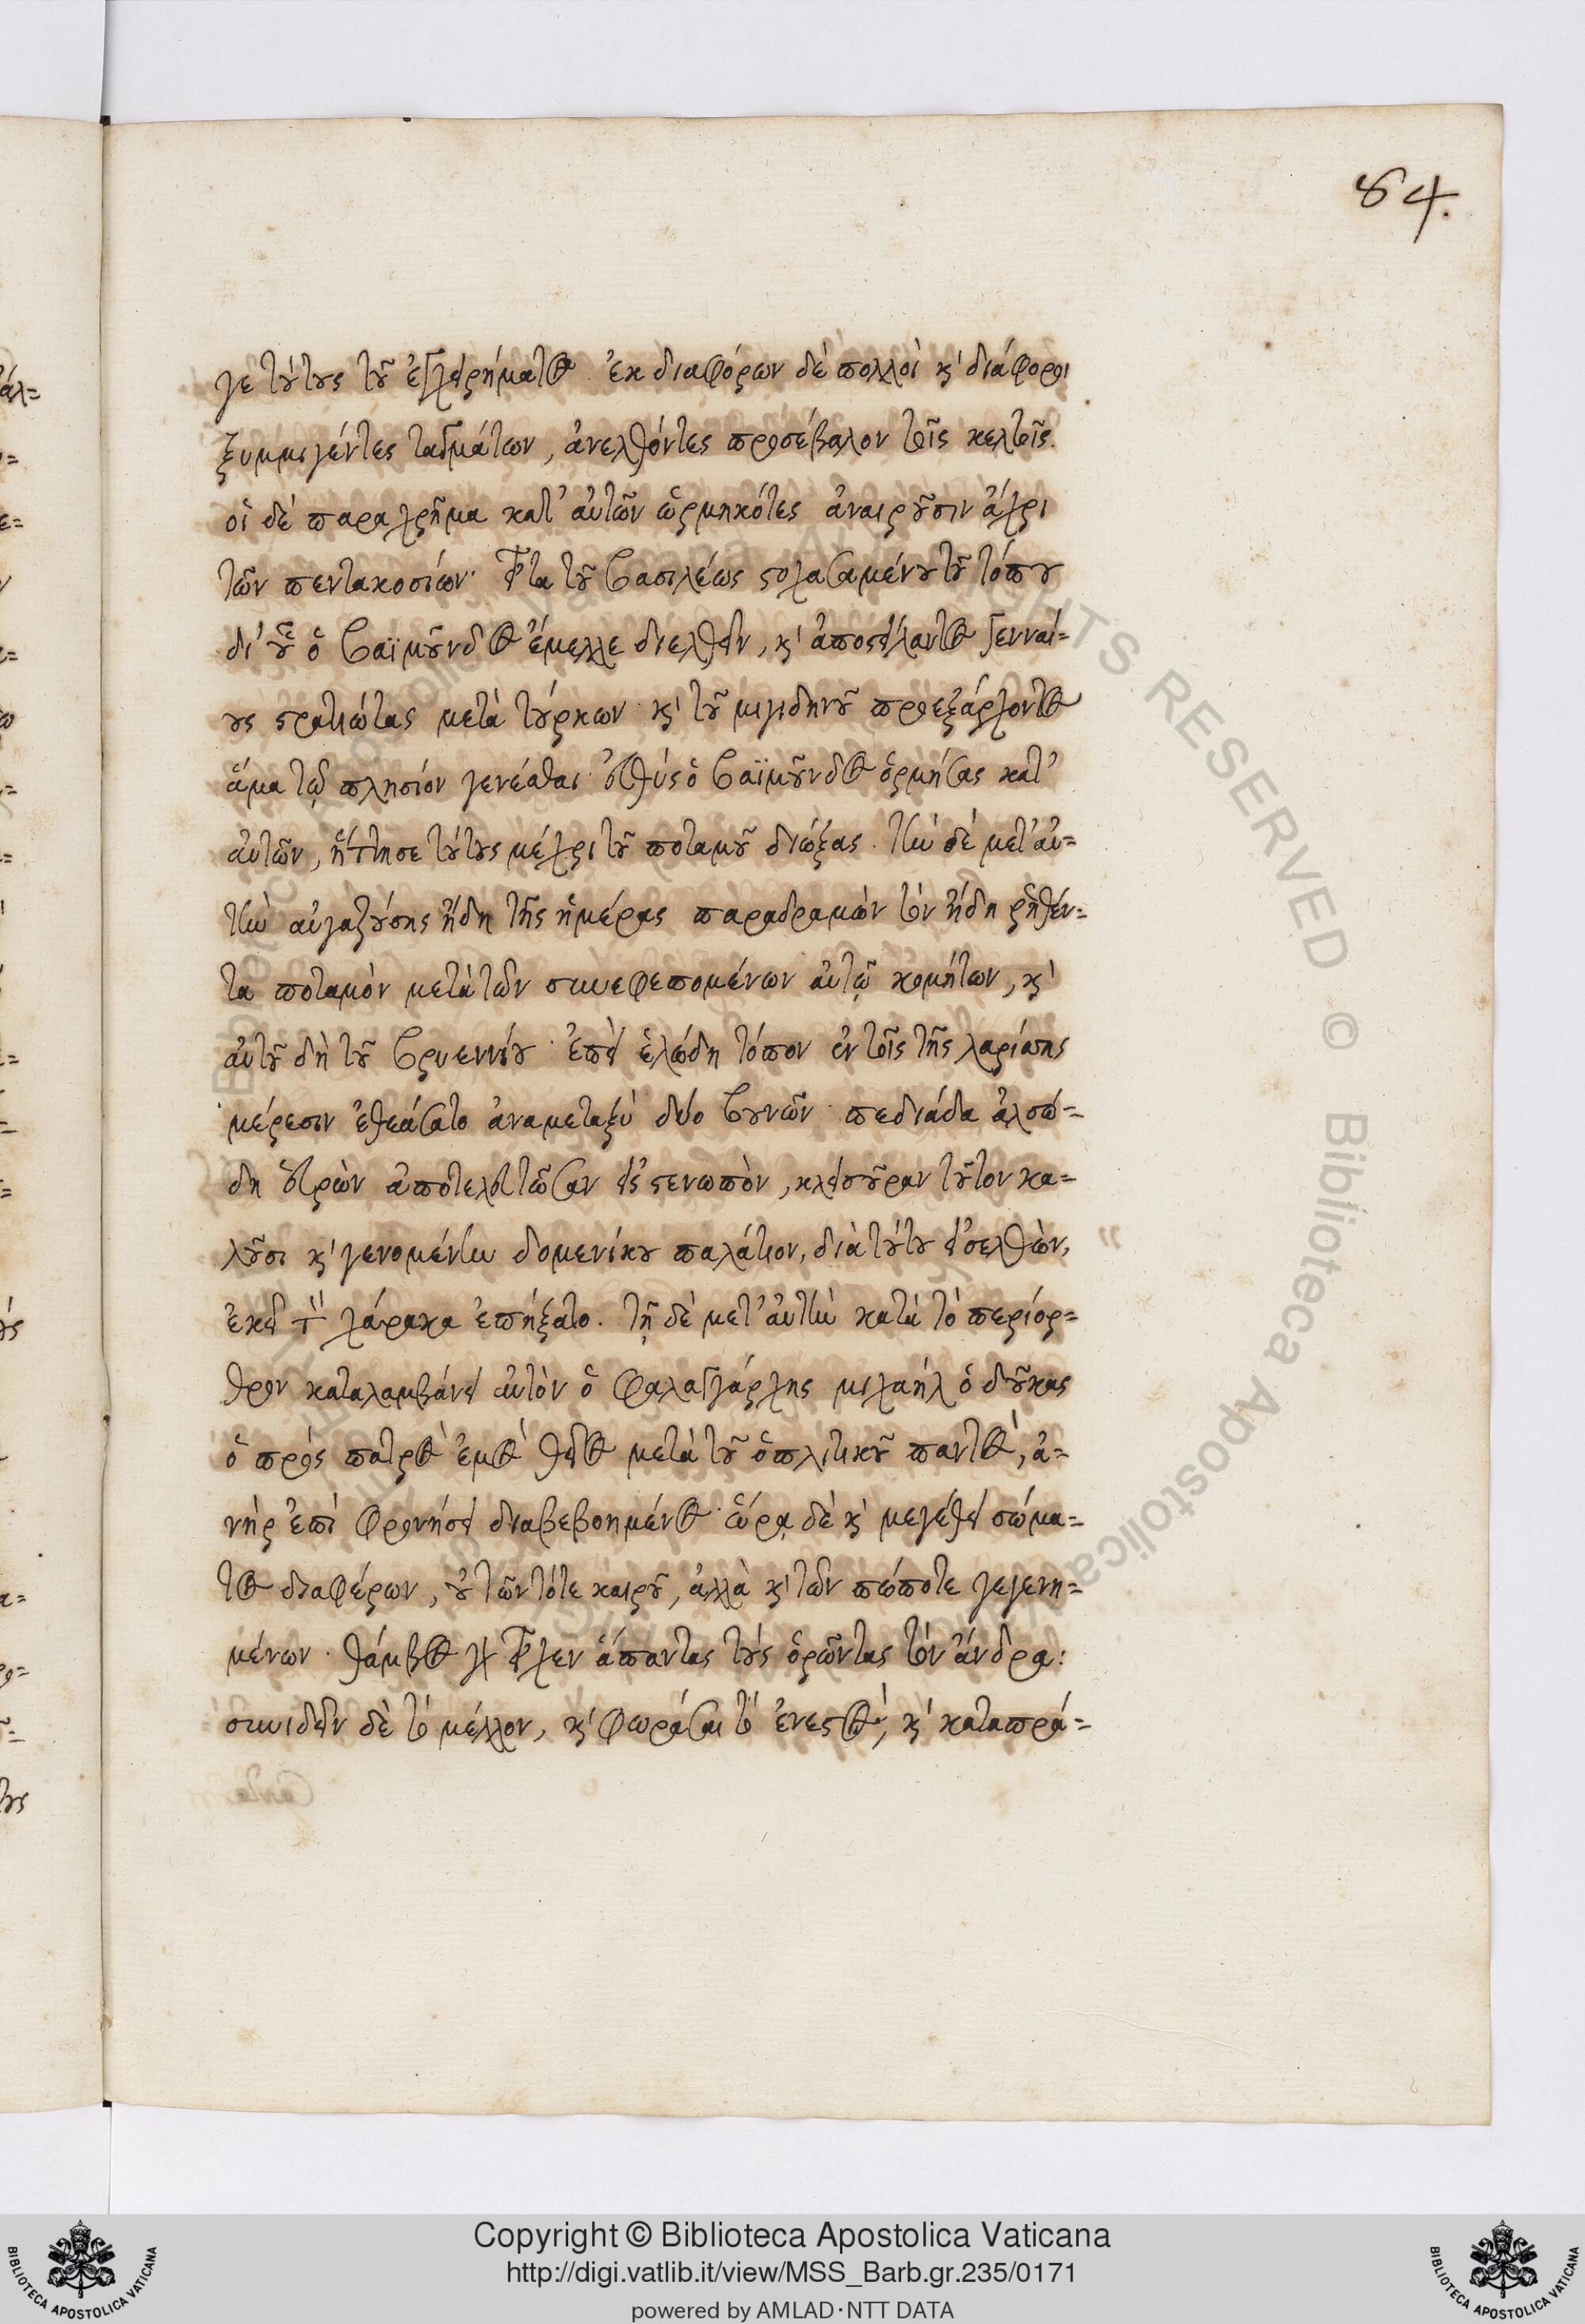 84.
γε τούτους τοῦ ἐγχειρήματος. ἐκ διαφόρων δὲ πολλοὶ κ' διάφοροι
ξυμμιγέντες ταγμάτων, ἀνελθόντες προσέβαλον τοῖς κελτοῖς.
οἱ δὲ παραχρῆμα κατ' αὐτῶν ὡρμηκότες ἀναιροῦσιν ἄχρι
τῶν πεντακοσίων· εἶτα τοῦ βασιλέως στοχασαμένου τοῦ τόπου
δι' οὗ ὁ βαϊμοῦνδος ἔμελλε διελθεῖν, κ' ἀποστείλαντος γενναί=
ους στρατιώτας μετὰ τούρκων κ' τοῦ μιγιδηνοῦ προεξάρχοντος
ἅμα τῷ πλησίον γενέσθαι· εὐθὺς ὁ βαϊμοῦνδος ὁρμήσας κατ'
αὐτῶν, ἥττησε τούτους μέχρι τοῦ ποταμοῦ διώξας. τὴν δὲ μετ' αὐ=
τὴν αὐγαζούσης ἤδη τῆς ἡμέρας παραδραμὼν τὸν ἤδη ῥηθέν=
τα ποταμὸν μετὰ τῶν συνεφεπομένων αὐτῷ κομήτων, κ'
αὐτοῦ δὴ τοῦ βρυεννίου· ἐπεὶ ἑλώδη τόπον ἐν τοῖς τῆς λαρίσσης
μέρεσιν ἐθεάσατο ἀναμεταξὺ δύο βουνῶν πεδιάδα ἀλσώ=
δη εὑρὼν ἀποτελευτῶσαν εἰς στενωπὸν, κλεισοῦραν τοῦτον κα=
λοῦσι κ' γενομένην δομενίκου παλάτιον, διὰ τούτου εἰσελθὼν,
ἐκεῖ τὸν χάρακα ἐπήξατο. τῇ δὲ μετ' αὐτὴν κατὰ τὸ περίορ=
θρον καταλαμβάνει αὐτὸν ὁ φαλαγγάρχης μιχαὴλ ὁ δούκας
ὁ πρὸς πατρὸς ἐμὸς θεῖος μετὰ τοῦ ὁπλιτικοῦ παντὸς, ἀ=
νὴρ ἐπὶ φρονήσει διαβεβοημένος· ὥρᾳ δὲ κ' μεγέθει σώμα=
τος διαφέρων, οὐ τῶν τότε καιροῦ, ἀλλὰ κ' τῶν πώποτε γεγενη=
μένων· θάμβος γὰρ εἶχεν ἅπαντας τοὺς ὁρῶντας τὸν ἄνδρα:
συνιδεῖν δὲ τὸ μέλλον, κ' φωράσαι τὸ ἐνεστὸς, κ' καταπρά=
Copyright © Biblioteca Apostolica Vaticana
http://digi.vatlib.it/view/MSS_Barb.gr.235/0171
powered by AMLAD·NTT DATA